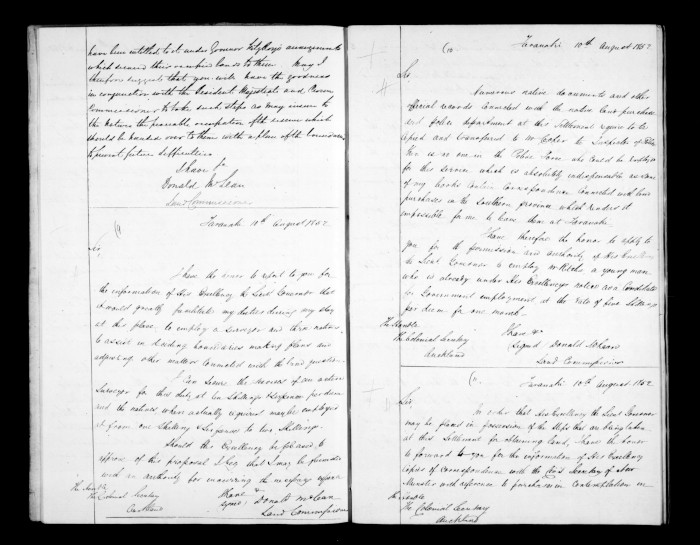 have been entitled to it under Governor FitzRoy's arrangements
which secured these unsold lands to them. May I
therefore suggest that you will have the goodness
in conjunction with the Resident Magistrate and
Commissioner to take such steps as may secure to
the Natives the peaceable occupation of the
should be handed over to them with a plan of the boundaries
to prevent future difficulties
I have &c
Donald McLean
Land Commissioner
(9
Taranaki 10th August 1852
Sir,
I have the honor to report to you for
the information of His Excellency the Lieut Governor that
it would greatly facilitate my duties during my stay
at this place, to employ a Surveyor and three natives
to assist in deciding boundaries making plans and
adjusting other matters connected with the land question.
I can secure the services of an active
Surveyor for this duty at ten Shillings & sixpence per diem
and the natives when actually required may be employed
at from one Shilling & sixpence to two Shillings.
Should His Excellency be pleased to
approve of this proposal I beg that I may be furnished
with an authority for incurring the necessary expense
I have &
The Honble
The Colonial Secretary
Auckland
signed, Donald McLean
Land Commissioner
(10
Taranaki 10th August 1852
Sir,
Numerous native documents and other
official records connected with the native land purchase
and police department at this Settlement require to be
copied and transferred to Mr Cooper as Inspector of Police
There is no one in the Police Force who could be employed
for this service which is absolutely indispensable as some
of my books contain correspondence connected with land
purchases in the Southern province which renders it
impossible for me to leave them at Taranaki.
I have therefore the honor to apply to
you for the permission and authority of His Excellency
the Lieut Governor to employ a young man
who is already under His Excellency's notice as a Candidate
for Government employment at the rate of five Shillings
per diem for one month.
I have &
The Honble
The Colonial Secretary
Auckland
Signed Donald McLean
Land Commissioner
(11
Taranaki 10th August 1852
Sir,
In order that His Excellency the Lieut Governor
may be placed in possession of the steps that are being taken
at this Settlement for obtaining land, I have the honor
to forward to you for the information of His Excellency
copies of correspondence with the Civil Secretary of New
Munster with reference to purchases in contemplation in
The Honble
The Colonial Secretary
Auckland